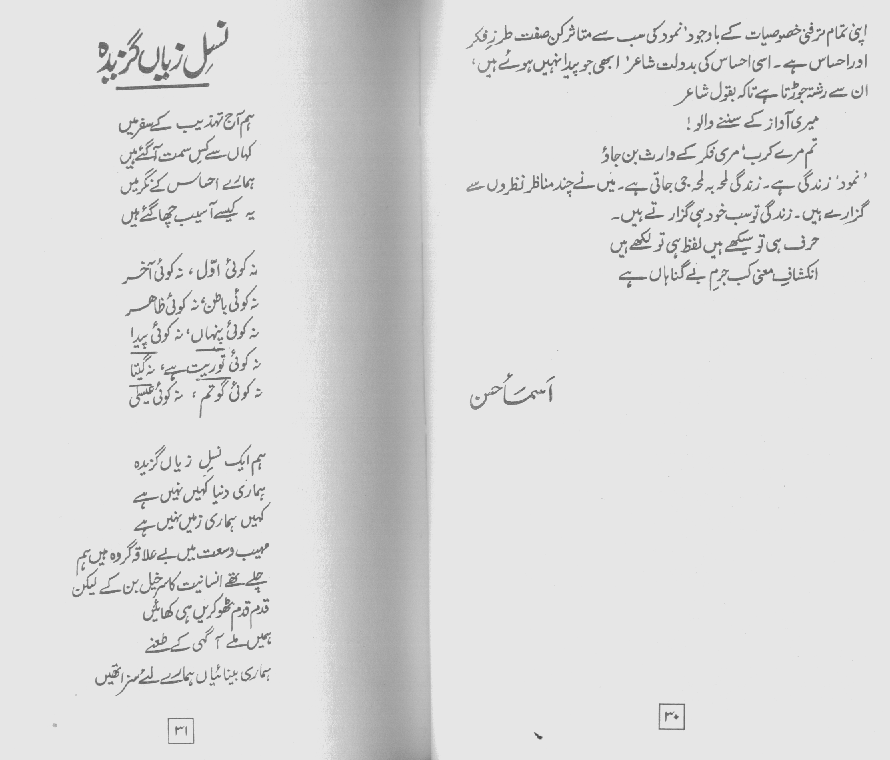 اپنی تمام تر فنی خصوصیات کے باوجود 'نمود' کی سب سے متاثر کن صفت طرزِ فکر
اور احساس ہے۔ اسی احساس کی بدولت شاعر 'ابھی جو پیدا نہیں ہوئے ہیں'
ان سے رشتہ جوڑتا ہے تاکہ بقول شاعر
میری آواز کے سننے والو!
تم مرے کرب، مری فکر کے وارث بن جاؤ
'نمود' زندگی ہے۔ زندگی لمحہ بہ لمحہ جی جاتی ہے۔ میں نے چند مناظر نظروں سے
گزارے ہیں۔ زندگی تو سب خود ہی گزارتے ہیں۔
حرف ہی تو سیکھے ہیں لفظ ہی تو لکھے ہیں
انکشافِ معنی کب جرمِ بے گناہاں ہے
اسماء حسن
۳۰
نسلِ زیاں گزیدہ
ہم آج تہذیب کے سفر میں
کہاں سے کس سمت آ گئے ہیں
ہمارے احساس کے نگر میں
یہ کیسے آسیب چھا گئے ہیں
نہ کوئی اوّل، نہ کوئی آخر
نہ کوئی باطن، نہ کوئی ظاہر
نہ کوئی پنہاں، نہ کوئی پیدا
نہ کوئی توریت ہے، نہ گیتا
نہ کوئی گوتم، نہ کوئی عیسیٰ
ہم ایک نسلِ زیاں گزیدہ
ہماری دنیا کہیں نہیں ہے
کہیں ہماری زمیں نہیں ہے
مہیب وسعت میں بے علاقہ گروہ ہیں ہم
چلے تھے انسانیت کا سرخیل بن کے لیکن
قدم قدم ٹھوکریں ہی کھائیں
ہمیں ملے آگہی کے طعنے
ہماری بینائیاں ہمارے لئے سزا تھیں
۳۱